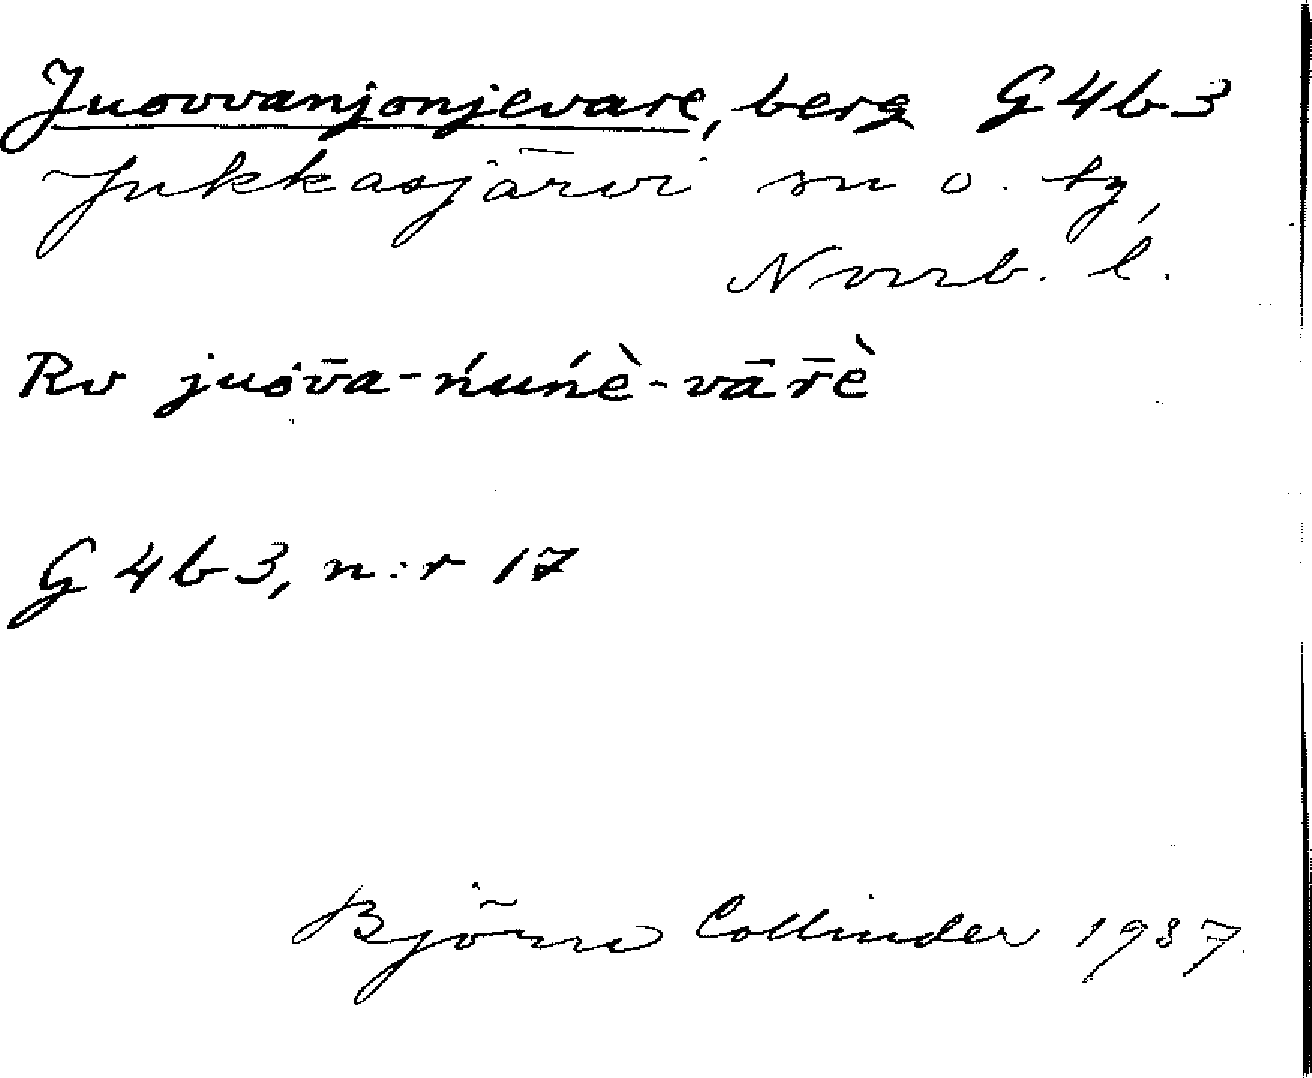 Juovvanjonjevare, berg G4b3
Jukkasjärvi sn o. tg,
Norrb. l.
Rv juȯv̄a-ńuńè-vār̄è
G4b3, n:r 17
Björn Collinder 1937